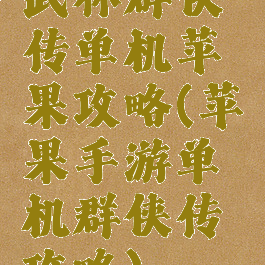 武林群侠
传单机苹
果攻略(苹
果手游单
机群侠传
攻略)